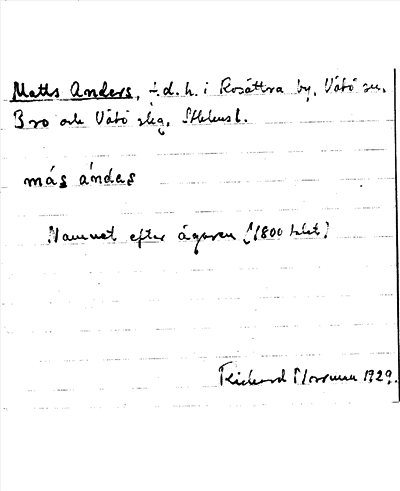 Matts Anders, f.d. h. i Rosättra by, Vätö sn,
Bro och Vätö skg, Sthlms l.
más ándas
Namnet efter ägaren (1800 talet)
Richard 1929.